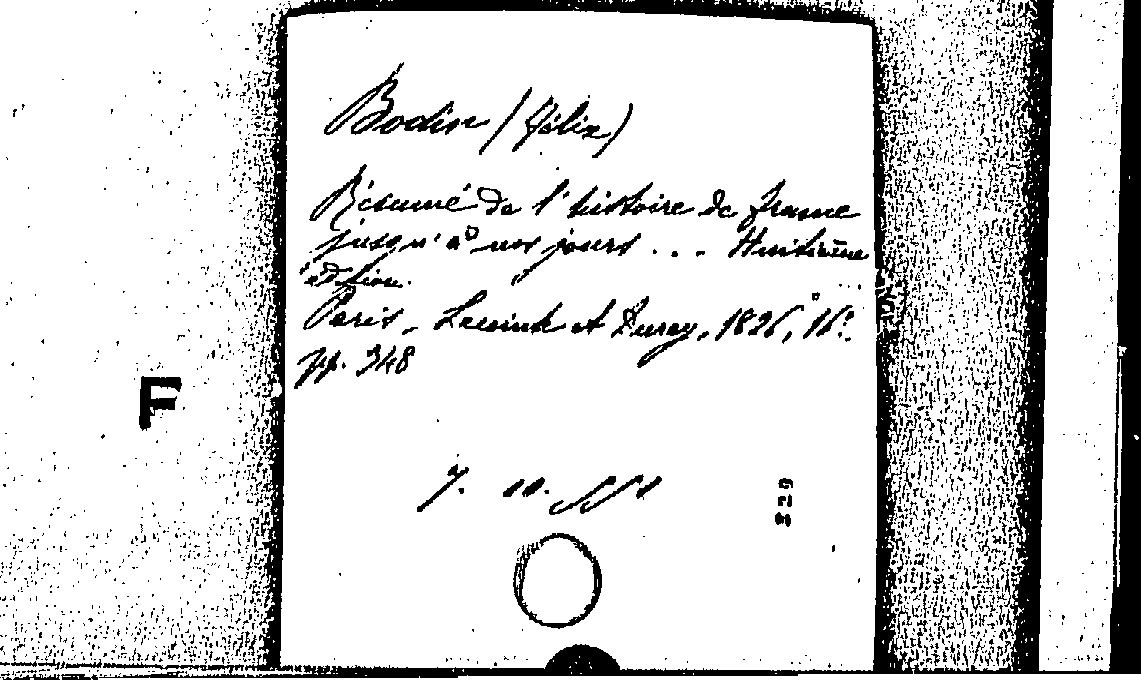 Bodin (Félix)
Résumé de l'histoire de france
jusqu'à nos jours ... Huitième
édition.
Paris, Lecointe et Durey, 1826, 16°.
pp. 348
F
7. 10.
329